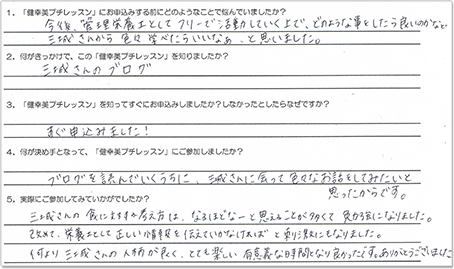 1.「健幸美プチレッスン」にお申込みする前にどのようなことで悩んでいましたか?
今後、管理栄養士としてフリーで活動していく上で、どのような事をしたら良いのかなと
三城さんから色々学べたらいいなぁ、と思いました。
2. 何がきっかけで、この「健幸美プチレッスン」を知りましたか?
三城さんのブログ
3. 「健幸美プチレッスン」を知ってすぐにお申込みしましたか?しなかったとしたらなぜですか?
すぐ申込みました!
4. 何が決め手となって、「健幸美プチレッスン」にご参加しましたか?
ブログを読んでいくうちに、三城さんに会って色々なお話をしてみたいと
思ったからです。
5. 実際にご参加してみていかがでしたか?
三城さんの食に対する考え方は、なるほどなーと思えることが多くて勉強になりました。
改めて、栄養士として正しい情報を伝えていかなければと刺激にもなりました。
何より三城さんの人柄が良く、とても楽しい有意義な時間となり良かったです。ありがとうございました